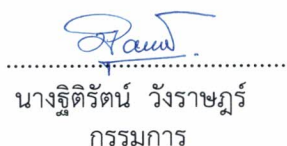 นางฐิติรัตน์ วังราษฎร์
กรรมการ